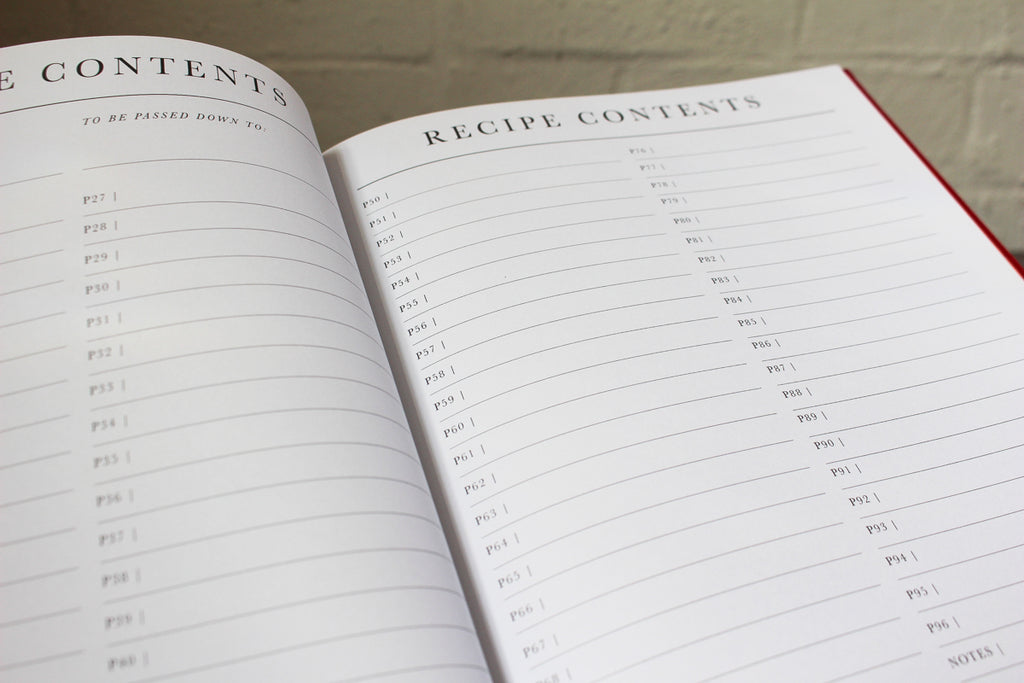 E CONTENTS
TO BE PASSED DOWN TO:
P27 |
P28 |
P29 |
P30 |
P31 |
P32 |
P33 |
P34 |
P35 |
P36 |
P37 |
P38 |
P39 |
P40 |
RECIPE CONTENTS
P50 |
P51 |
P52 |
P53 |
P54 |
P55 |
P56 |
P57 |
P58 |
P59 |
P60 |
P61 |
P62 |
P63 |
P64 |
P65 |
P66 |
P67 |
P76 |
P77 |
P78 |
P79 |
P80 |
P81 |
P82 |
P83 |
P84 |
P85 |
P86 |
P87 |
P88 |
P89 |
P90 |
P91 |
P92 |
P93 |
P94 |
P95 |
P96 |
NOTES |